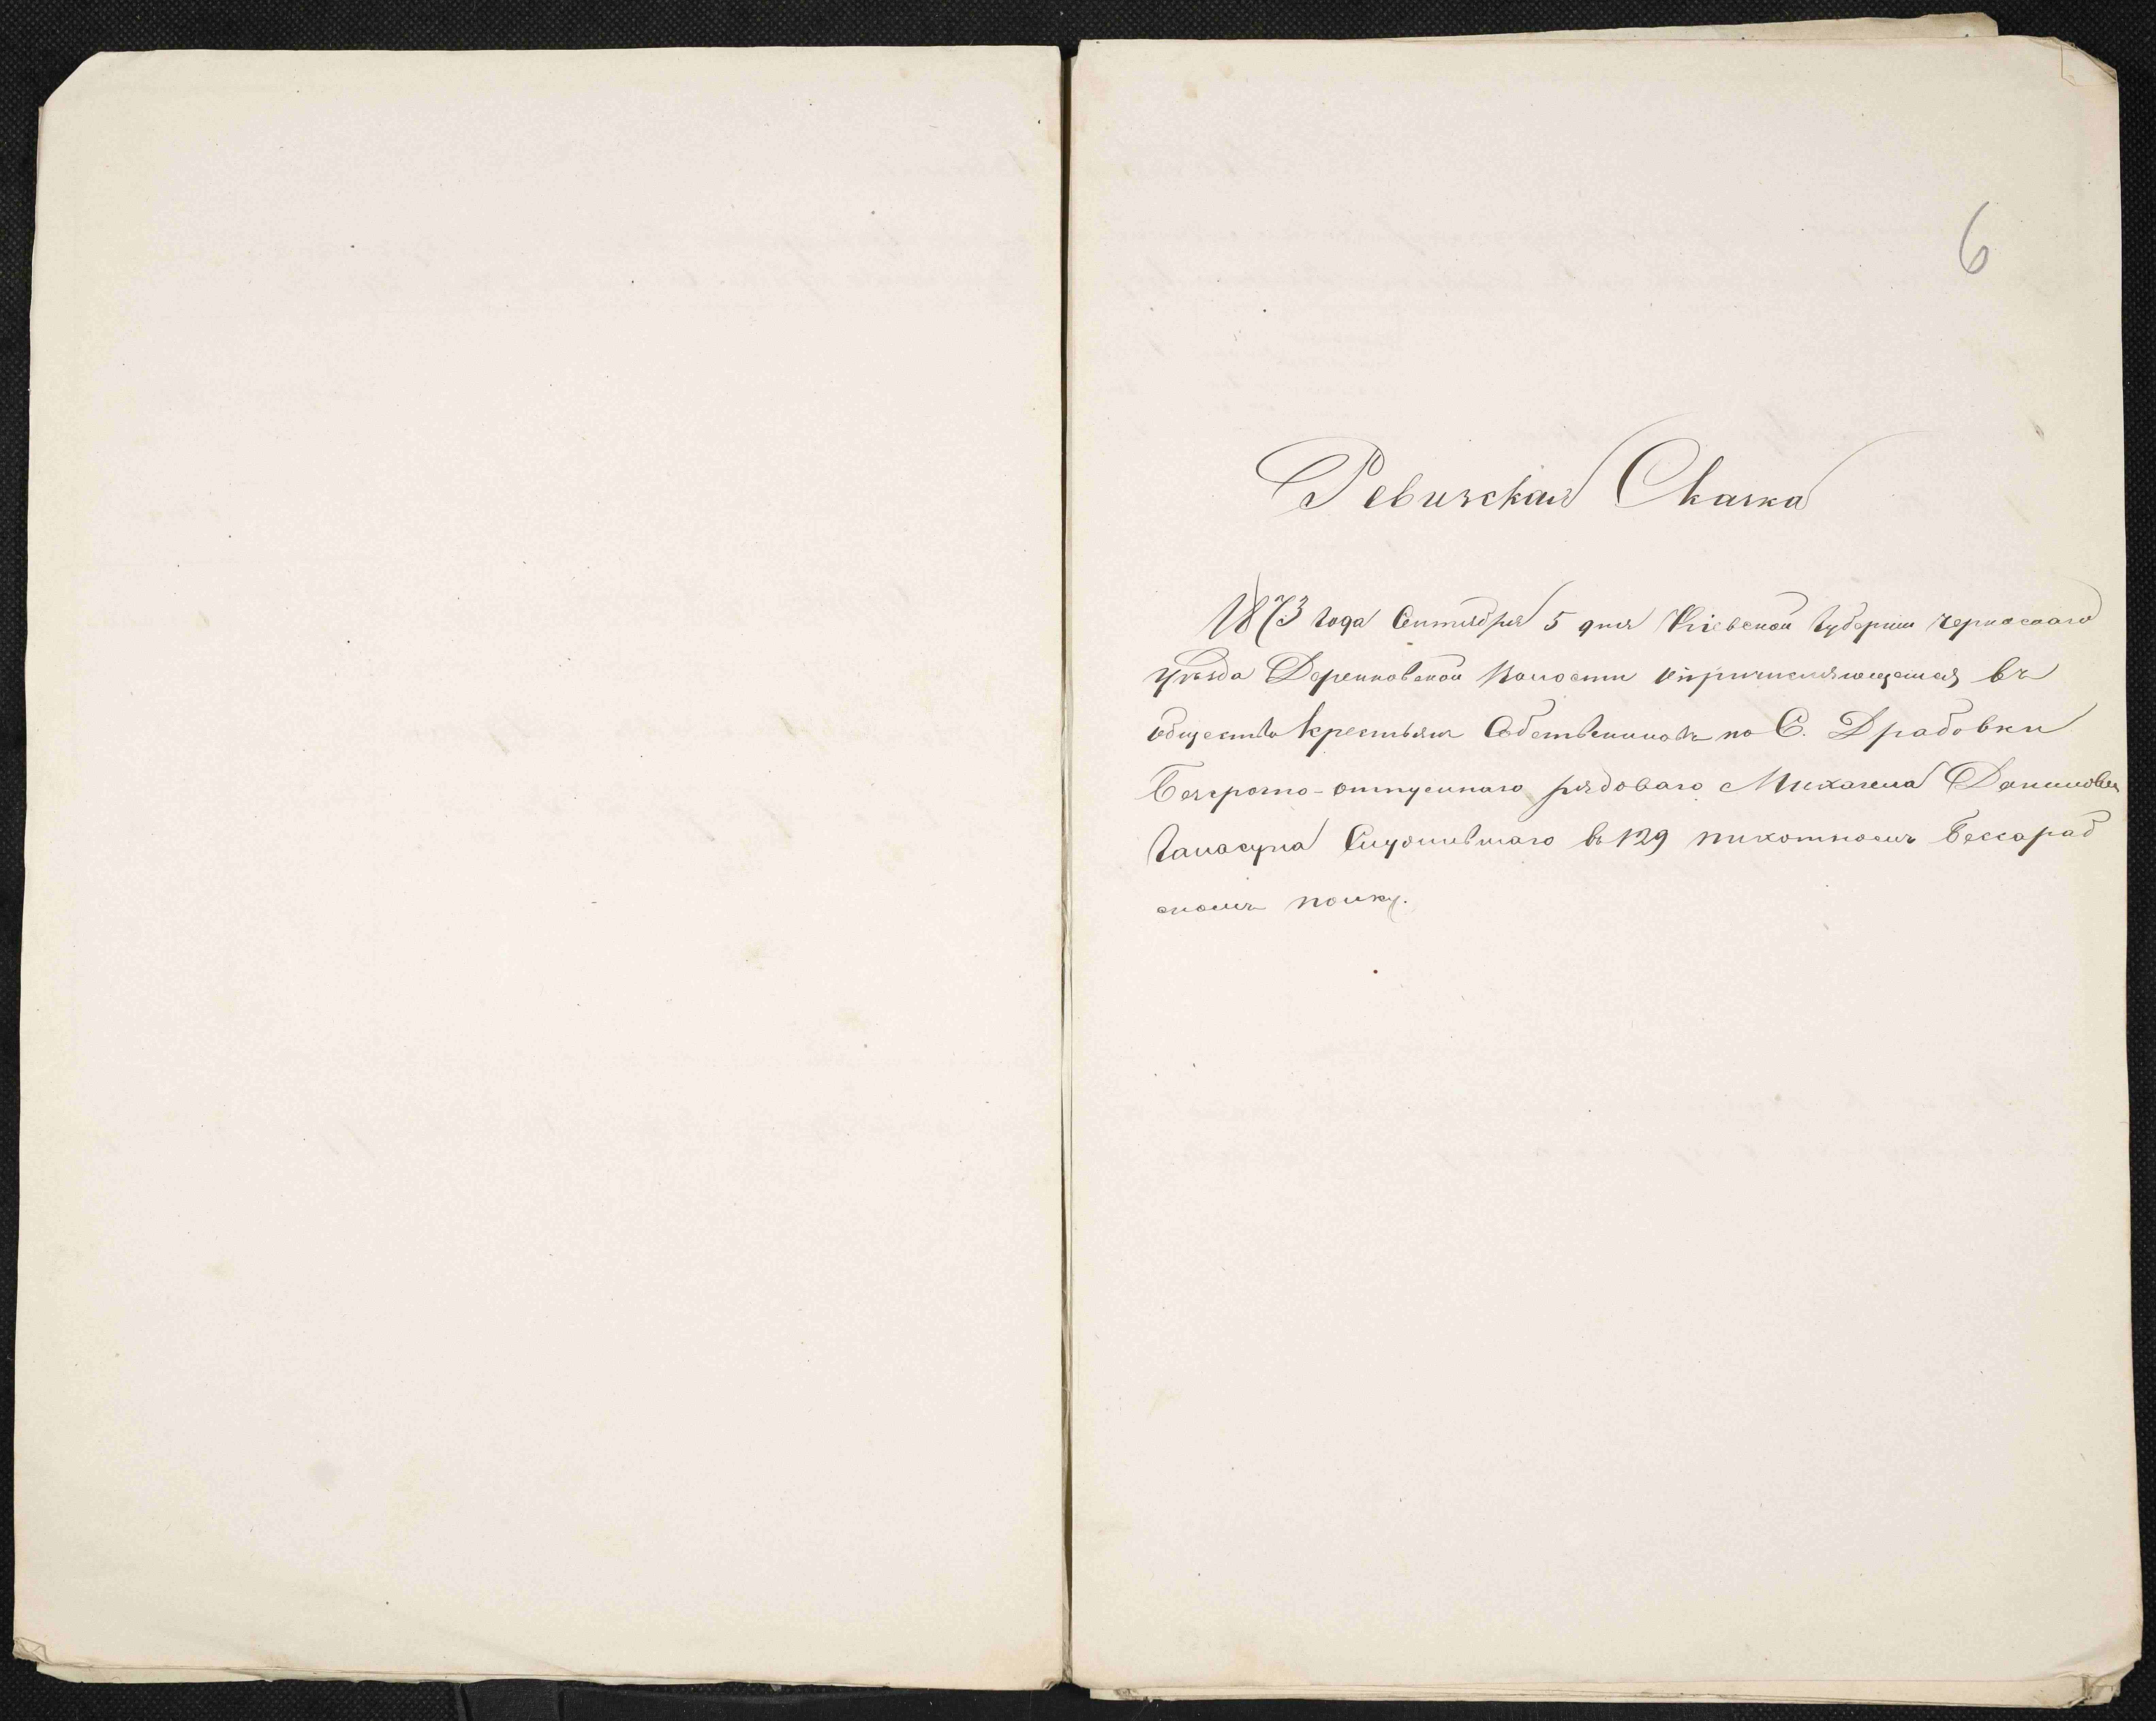 6
Ревизская Сказка
1873 года Сентября 5 дня Кіевской Губерніи Черкаскаго
Уезда Деренковской Волости о причисляющемся въ
общество крестьян Собственниковъ по С. Драбовки
безсрочно-отпускнаго рядоваго Михаила Данилова
Служившаго въ 129 пихотномъ Бессараб
скомъ полку.